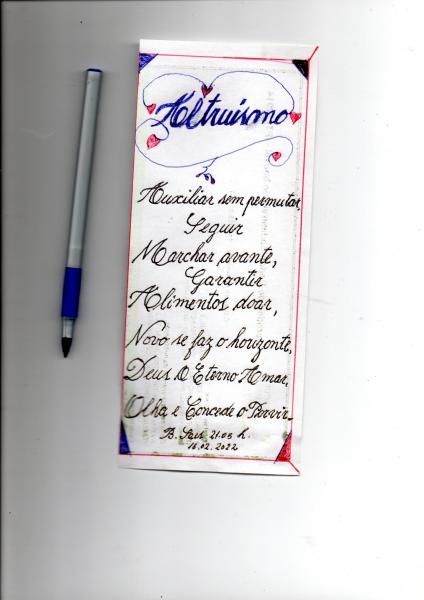 Altruísmo
Auxiliar sem permutar,
Seguir
Marchar avante,
Garantir
Alimentos doar,
Novo se faz o horizonte,
Deus O Eterno Amar,
Olha e Concede o Porvir.
21:03 h.
16.02.2022